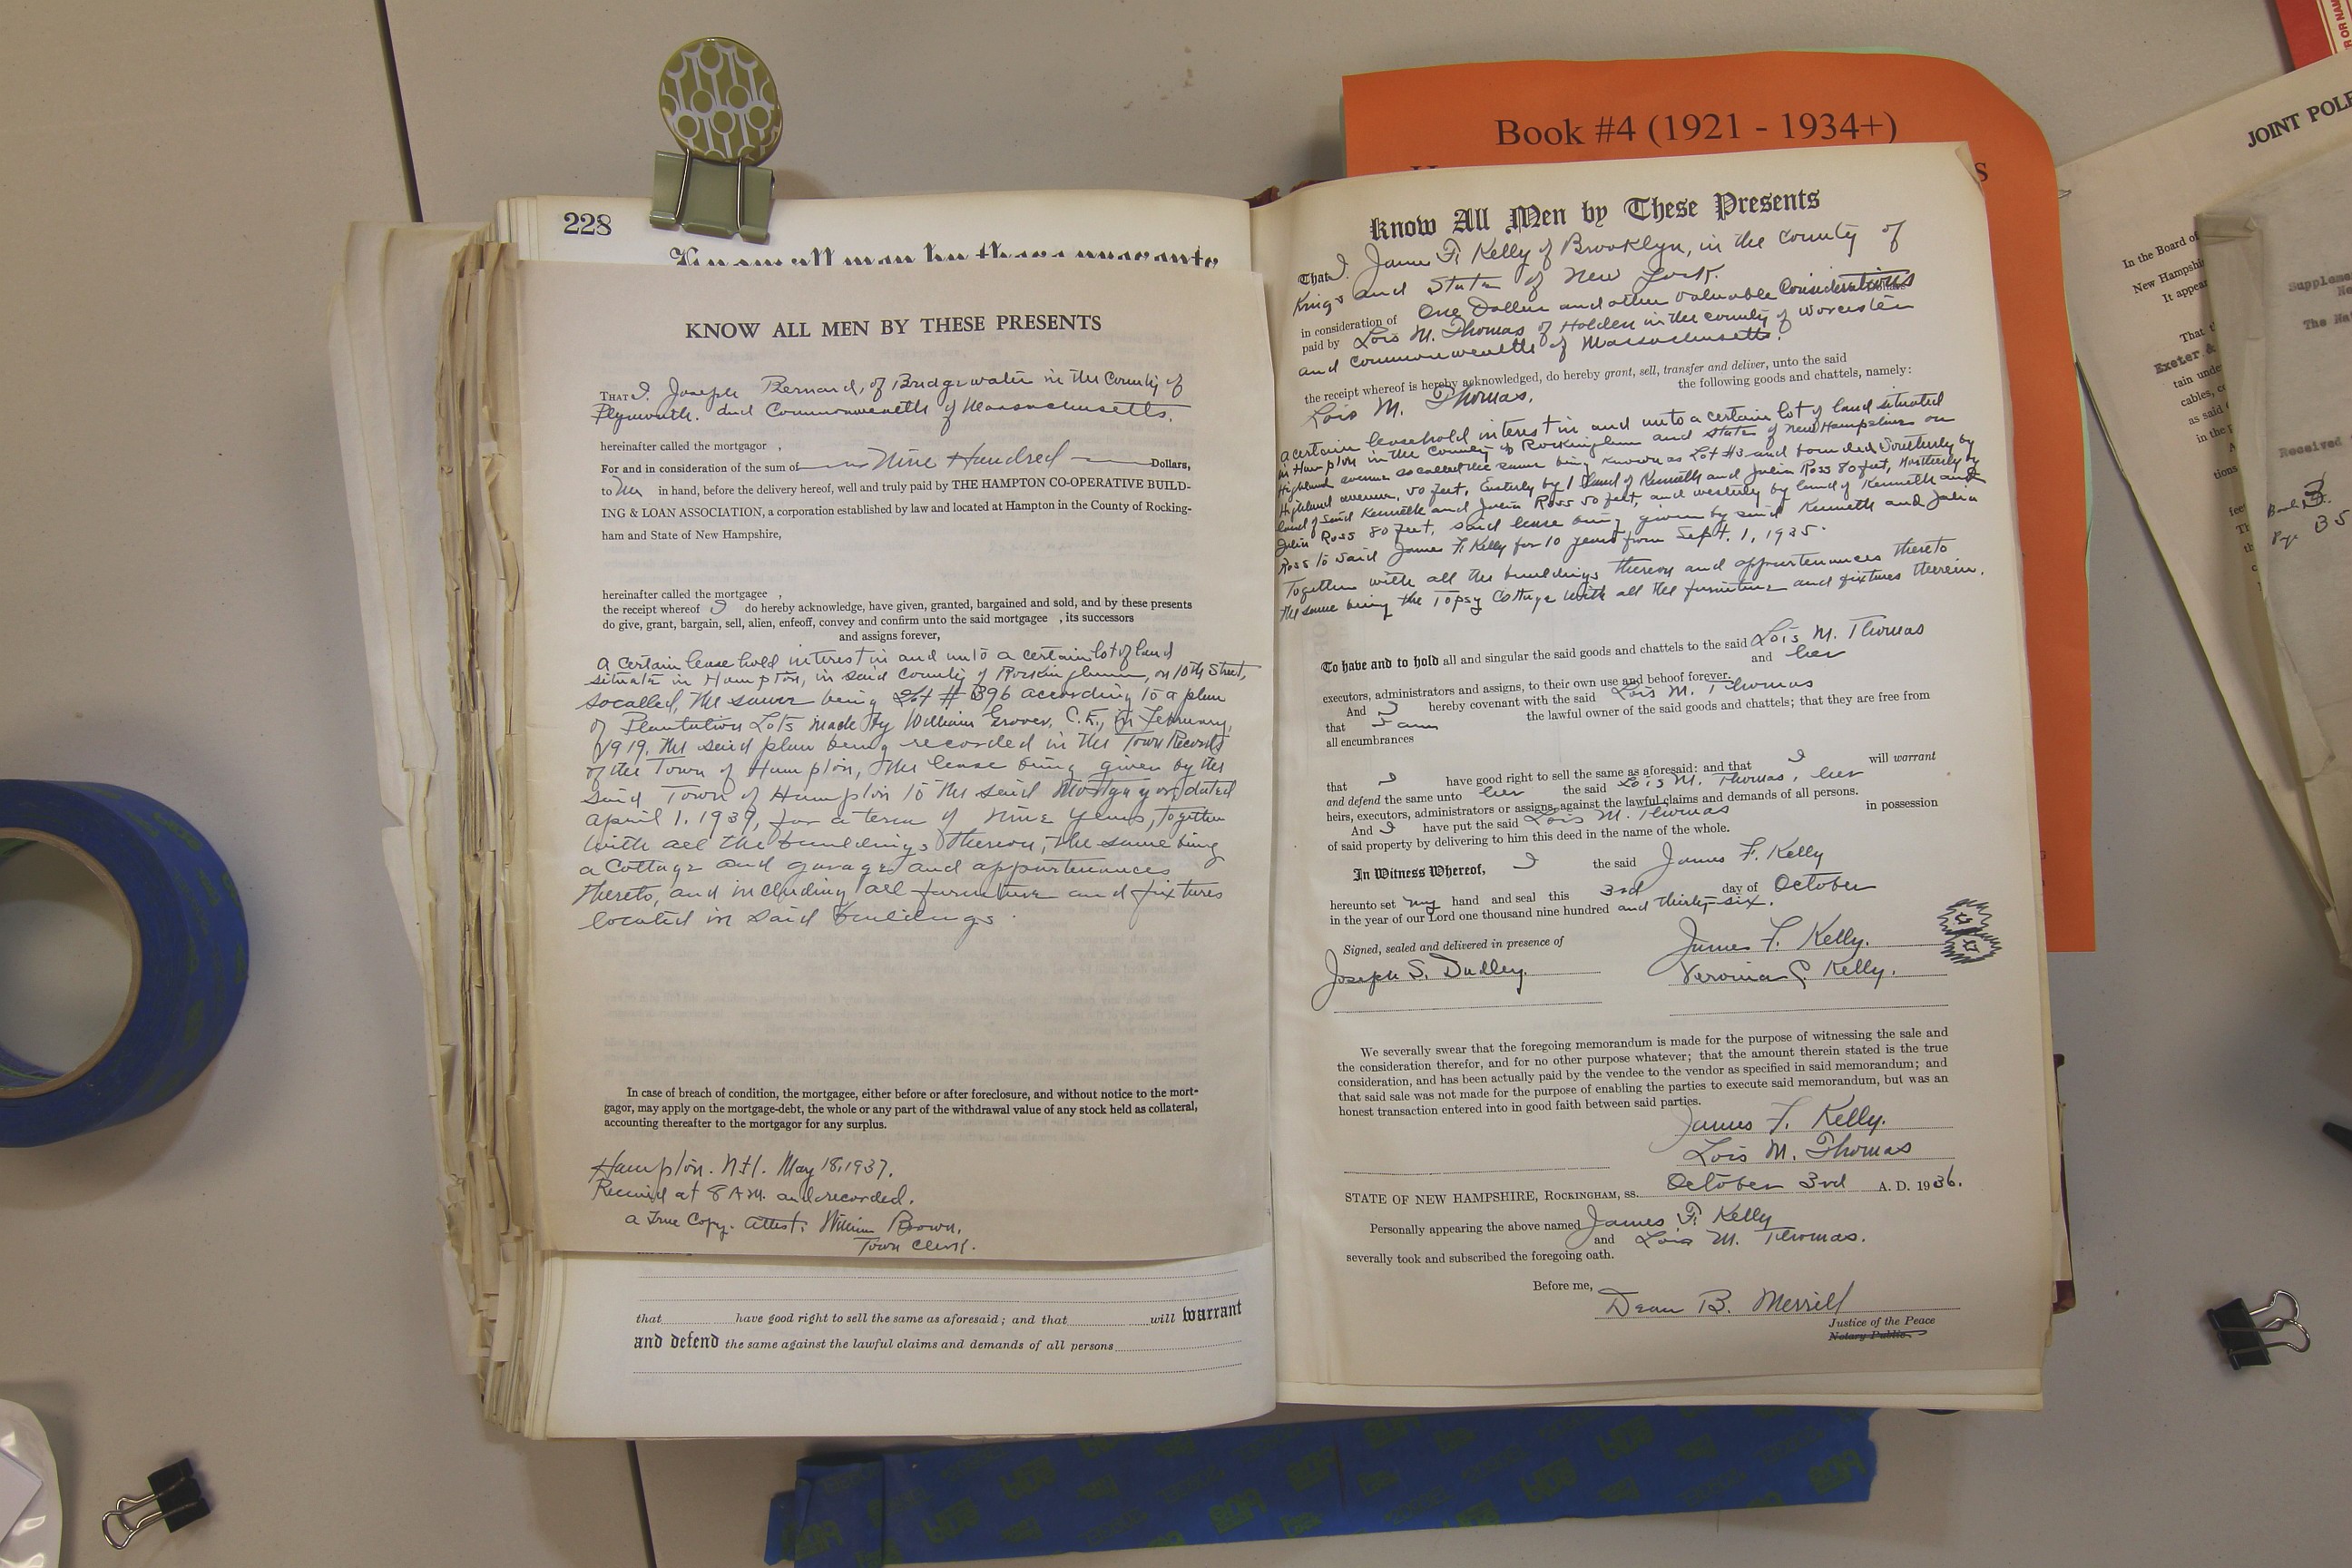 228
Know all men by these presents
KNOW ALL MEN BY THESE PRESENTS
THAT I, Joseph Bernard, of Bridgewater in the County of
Plymouth. and Commonwealth of Massachusetts.
hereinafter called the mortgagor ,
For and in consideration of the sum of Nine Hundred Dollars,
to me in hand, before the delivery hereof, well and truly paid by THE HAMPTON CO-OPERATIVE BUILD-
ING & LOAN ASSOCIATION, a corporation established by law and located at Hampton in the County of Rocking-
ham and State of New Hampshire,
hereinafter called the mortgagee ,
the receipt whereof I do hereby acknowledge, have given, granted, bargained and sold, and by these presents
do give, grant, bargain, sell, alien, enfeoff, convey and confirm unto the said mortgagee , its successors
and assigns forever,
a certain lease hold interest in and unto a certain lot of land
situate in Hampton, in said County of Rockingham, on 10th Street,
socalled, the same being Lot # 396 acording to a plan
of Plantation Lots made by William Grover, C.E., in February,
1919, the said plan being recorded in the Town Records
of the Town of Hampton, the lease being given by the
said Town of Hampton to the said Mortgagor, dated
April 1. 1939, for a term of nine years, together
with all the buildings thereon, the same being
a Cottage and garage and appurtenances
thereto, and including all furniture and fixtures
located in said buildings.
In case of breach of condition, the mortgagee, either before or after foreclosure, and without notice to the mort-
gagor, may apply on the mortgage-debt, the whole or any part of the withdrawal value of any stock held as collateral,
accounting thereafter to the mortgagor for any surplus.
Hampton. N.H. May 18, 1937.
Received at 8 A.M. and recorded.
a True Copy. Attest: William Brown,
Town Clerk.
that have good right to sell the same as aforesaid; and that will warrant
and defend the same against the lawful claims and demands of all persons
Book #4 (1921 - 1934+)
Know All Men by These Presents
That I. James F. Kelly of Brooklyn, in the county of
Kings and State of New York.
in consideration of One Dollar and other Valuable Considerations
paid by Lois M. Thomas of Holden in the county of Worcester
and Commonwealth of Massachusetts.
the receipt whereof is hereby acknowledged, do hereby grant, sell, transfer and deliver, unto the said
Lois M. Thomas. the following goods and chattels, namely:
a certain leasehold interest in and unto a certain lot of land situated
in Hampton in the County of Rockingham and State of New Hampshire on
Highland avenue socalled the same being known as Lot #3 and bounded Southerly by
Highland avenue, 50 feet, Easterly by land of Kenneth and Julia Ross 80 feet, Northerly by
land of said Kenneth and Julia Ross 50 feet, and westerly by land of Kenneth and
Julia Ross 80 feet, said lease being given by said Kenneth and Julia
Ross to said James F. Kelly for 10 years from Sept. 1, 1935.
Together with all the buildings thereon and appurtenances thereto
the same being the Topsy Cottage with all the furniture and fixtures therein.
To have and to hold all and singular the said goods and chattels to the said Lois M. Thomas
and her
executors, administrators and assigns, to their own use and behoof forever.
And I hereby covenant with the said Lois M. Thomas
that I am the lawful owner of the said goods and chattels; that they are free from
all encumbrances
that I have good right to sell the same as aforesaid: and that I will warrant
and defend the same unto her the said Lois M. Thomas, her
heirs, executors, administrators or assigns, against the lawful claims and demands of all persons.
And I have put the said Lois M. Thomas in possession
of said property by delivering to him this deed in the name of the whole.
In Witness Whereof, I the said James F. Kelly
hereunto set my hand and seal this 3rd day of October
in the year of our Lord one thousand nine hundred and thirty-six.
Signed, sealed and delivered in presence of
James F. Kelly.
Joseph S. Dudley. Veronica C. Kelly.
We severally swear that the foregoing memorandum is made for the purpose of witnessing the sale and
the consideration therefor, and for no other purpose whatever; that the amount therein stated is the true
consideration, and has been actually paid by the vendee to the vendor as specified in said memorandum; and
that said sale was not made for the purpose of enabling the parties to execute said memorandum, but was an
honest transaction entered into in good faith between said parties.
James F. Kelly.
Lois M. Thomas
STATE OF NEW HAMPSHIRE, ROCKINGHAM, ss. October 3rd A. D. 1936.
Personally appearing the above named James F. Kelly
and Lois M. Thomas.
severally took and subscribed the foregoing oath.
Before me,
Dean B. Merrill
Justice of the Peace
Notary Public
JOINT POLE
In the Board of
New Hampshire
It appear
Exeter &
Supplement
The Nat
Received
Book 3.
Pg. 35